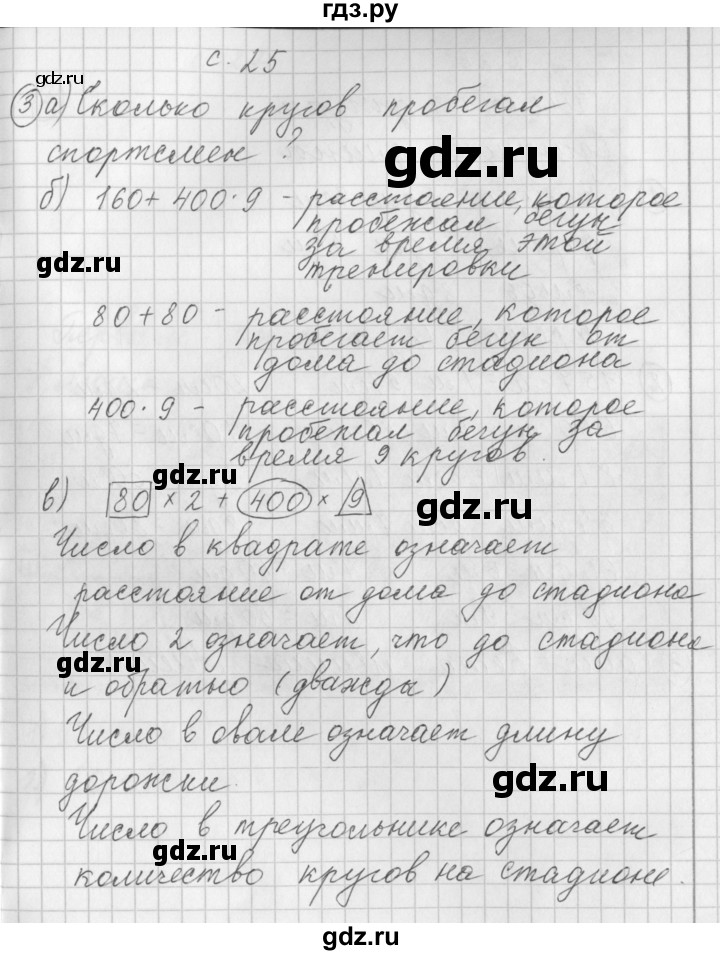 гдз.ру
с. 25
③ а) Сколько кругов пробегал
спортсмен ?
gdz.ru
gdz.ru
б) 160 + 400 · 9 - расстояние, которое
пробежал бегун
за время этой
тренировки
gdz.ru
80 + 80 - расстояние, которое
пробегает бегун от
дома до стадиона
400 · 9 - расстояние, которое
пробежал бегун за
время 9 кругов.
gdz.ru
gdz.ru
в) 80 × 2 + 400 × 9
Число в квадрате означает
расстояние от дома до стадиона
Число 2 означает, что до стадиона
gdz.ru
и обратно (дважды)
Число в овале означает длину
дорожки.
gdz.ru
Число в треугольнике означает
gdz.ru
количество кругов на стадионе.
gdz.ru